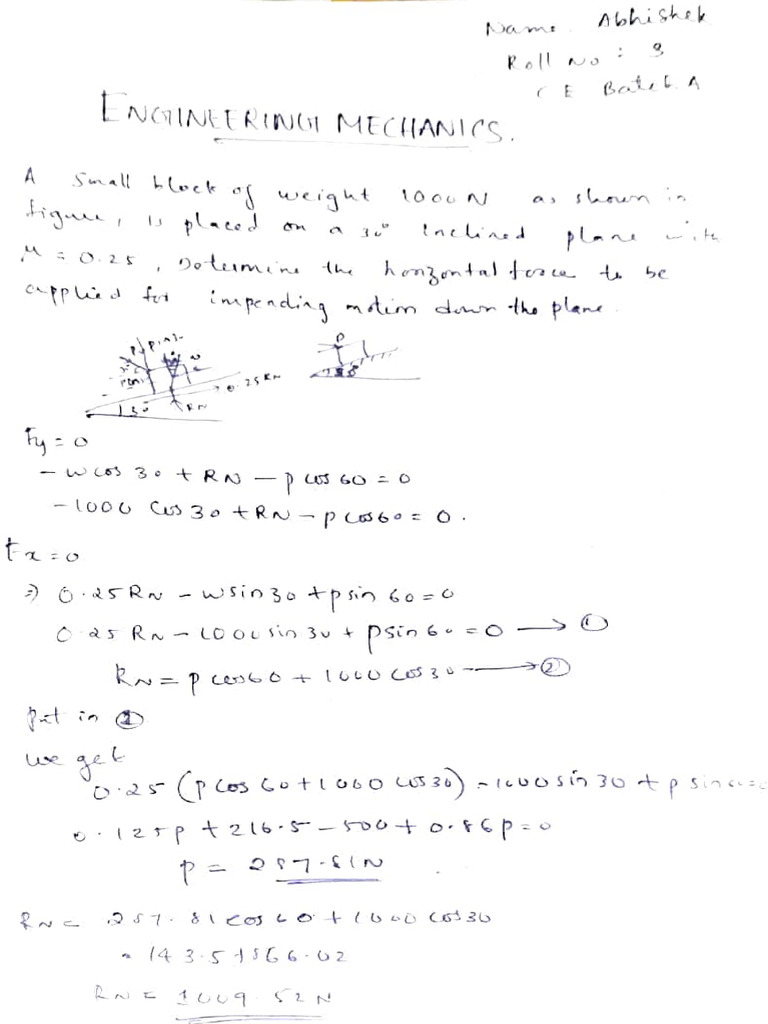 Name. Abhishek
Roll No : 9
CE Batch A
ENGINEERING MECHANICS.
A small block of weight 1000N as shown in
figure, is placed on a 30° inclined plane with
μ = 0.25, Determine the horizontal force to be
applied for impending motion down the plane.
P
0.25RN
30°
RN
Fy = 0
- w cos 30 + RN - p cos 60 = 0
- 1000 Cos 30 + RN - p cos 60 = 0.
Fx = 0
⇒ 0.25 RN - w sin 30 + p sin 60 = 0
0.25 RN - 1000 sin 30 + p sin 60 = 0 → ①
RN = p cos 60 + 1000 cos 30 → ②
Put in ①
we get
0.25 (p cos 60 + 1000 cos 30) - 1000 sin 30 + p sin
0.125p + 216.5 - 500 + 0.86p = 0
p = 287.81N
RN = 287.81 cos 60 + 1000 cos 30
= 143.5 + 866.02
RN = 1009.52N